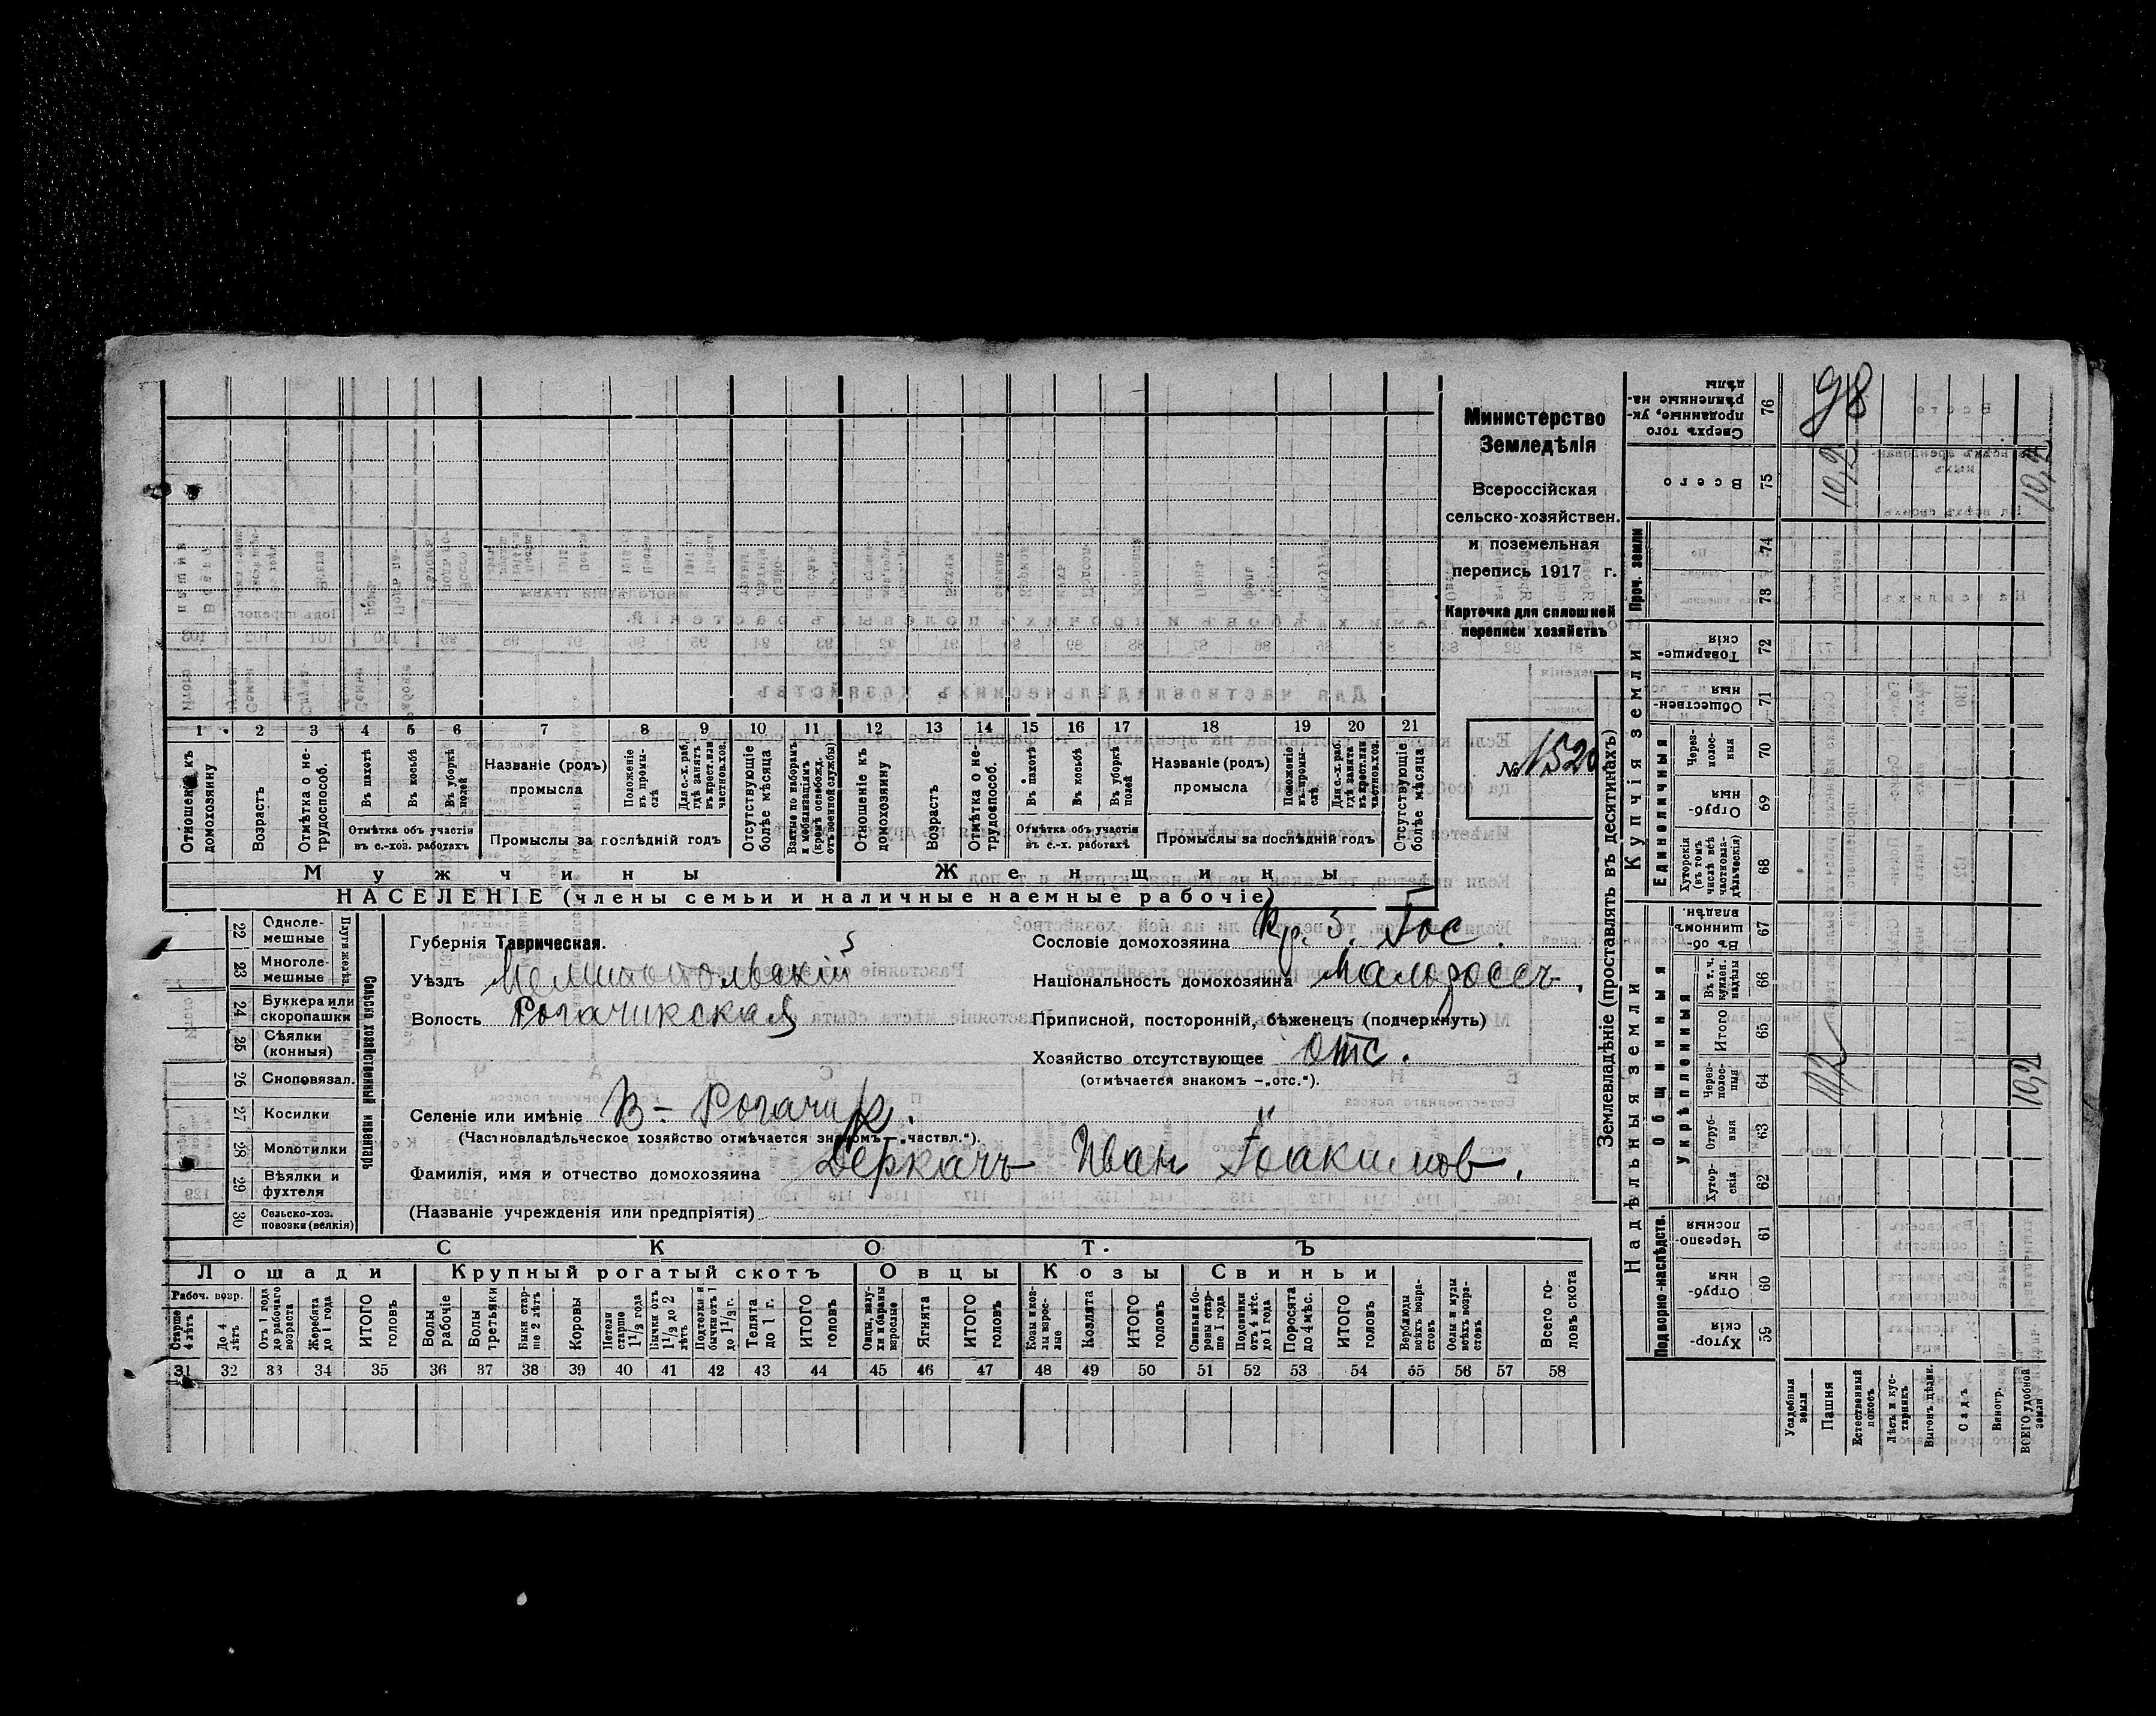 98
Министерство
Земледѣлія
Всероссійская
сельско-хозяйствен.
и поземельная
перепись 1917 г.
Карточка для сплошной
переписи хозяйствъ
№ 1520
1 2 3 4 5 6 7 8 9 10 11 12 13 14 15 16 17 18 19 20 21
Отношеніе къ домохозяину
Возрастъ
Отмѣтка о не-трудоспособ.
Въ пахотѣ
Въ косьбѣ
Въ уборкѣ полей
Отмѣтка объ участіи въ с.-хоз. работахъ
Названіе (родъ) промысла
Положеніе въ промы-слѣ
Для с.-х. раб. гдѣ занятъ въ крест. или частнов. хоз.
Промыслы за послѣдній годъ
Отсутствующіе болѣе мѣсяца
Взятые по наборамъ и мобилизаціямъ (кромѣ освобожд. отъ военной службы)
Отношеніе къ домохозяину
Возрастъ
Отмѣтка о не-трудоспособ.
Въ пахотѣ
Въ косьбѣ
Въ уборкѣ полей
Отмѣтка объ участіи въ с.-х. работахъ
Названіе (родъ) промысла
Положеніе въ промы-слѣ
Для с.-х. раб. гдѣ занята въ крест. или частнов. хоз.
Промыслы за послѣдній годъ
Отсутствующіе болѣе мѣсяца
Мужчины
Женщины
НАСЕЛЕНІЕ (члены семьи и наличные наемные рабочіе)
22 Однолемешные
23 Многолемешные
Плуги желѣз.
24 Буккера или скоропашки
25 Сѣялки (конныя)
26 Сноповязал.
27 Косилки
28 Молотилки
29 Вѣялки и фухтеля
30 Сельско-хоз. повозки (всякія)
Сельско хозяйственный инвентарь
Губернія Таврическая.
Уѣздъ Мелитопольскій
Волость Рогачикская
Сословіе домохозяина Кр. З. Гос.
Національность домохозяина Малоросс.
Приписной, посторонній, бѣженецъ (подчеркнуть)
Хозяйство отсутствующее отс.
(отмѣчается знакомъ –„отс.“).
Селеніе или имѣніе В - Рогачик.
(Частновладѣльческое хозяйство отмѣчается знакомъ „частвл.“).
Фамилія, имя и отчество домохозяина Деркачъ Иван Іоакимов.
(Названіе учрежденія или предпріятія)
СКОТЪ
Лошади Крупный рогатый скотъ Овцы Козы Свиньи
Рабоч. возр.
Старше 4 лѣтъ
До 4 лѣтъ
Отъ 1 года до рабочаго возраста
Жеребята до 1 года
ИТОГО головъ
Волы рабочіе
Волы третьяки
Быки стар-ше 2 лѣтъ
Коровы
Нетели старше 1 1/2 года
Бычки отъ 1 1/2 до 2 лѣтъ
Подтелки и бычки отъ 1 до 1 1/2 г.
Телята до 1 г.
ИТОГО головъ
Овцы, валу-хи и бараны взрослые
Ягнята
ИТОГО головъ
Козы и коз-лы взрос-лые
Козлята
ИТОГО головъ
Свиньи и бо-ровы стар-ше 1 года
Подсвинки отъ 4 мѣс. до 1 года
Поросята до 4 мѣс.
ИТОГО головъ
Верблюды всѣхъ возра-стовъ
Ослы и мулы всѣхъ возра-стовъ
Всего го-ловъ скота
31 32 33 34 35 36 37 38 39 40 41 42 43 44 45 46 47 48 49 50 51 52 53 54 55 56 57 58
Землевладѣніе (проставлять въ десятинахъ)
Надѣльныя земли
Купчія земли
Проч. земли
Подворно-наслѣдств.
Общинныя
Укрѣпленныя
Единоличныя
Сверхъ того проданные, ук-рѣпленные на-дѣлы 76
Всего 75 10,2 10,2
74
73
Товарище-скія 72
Обществен-ныя 71
Через-полос-ныя 70
Отруб-ныя 69
Хуторскія (въ томъ числѣ всѣ частновла-дѣльческія) 68
Въ об-щинномъ владѣн. 67
Въ т. ч. куплен. надѣлы 66
Итого 65
Через-полос-ныя 64 10,2 10,2
Отруб-ныя 63
Хутор-скія 62
Черезпо-лосныя 61
Отруб-ныя 60
Хутор-скія 59
Усадебныя земли
Пашня
Естественный покосъ
Лѣсъ и кус-тарникъ
Выгонъ цѣлик.
Садъ
Виногр.
ВСЕГО удобной земли